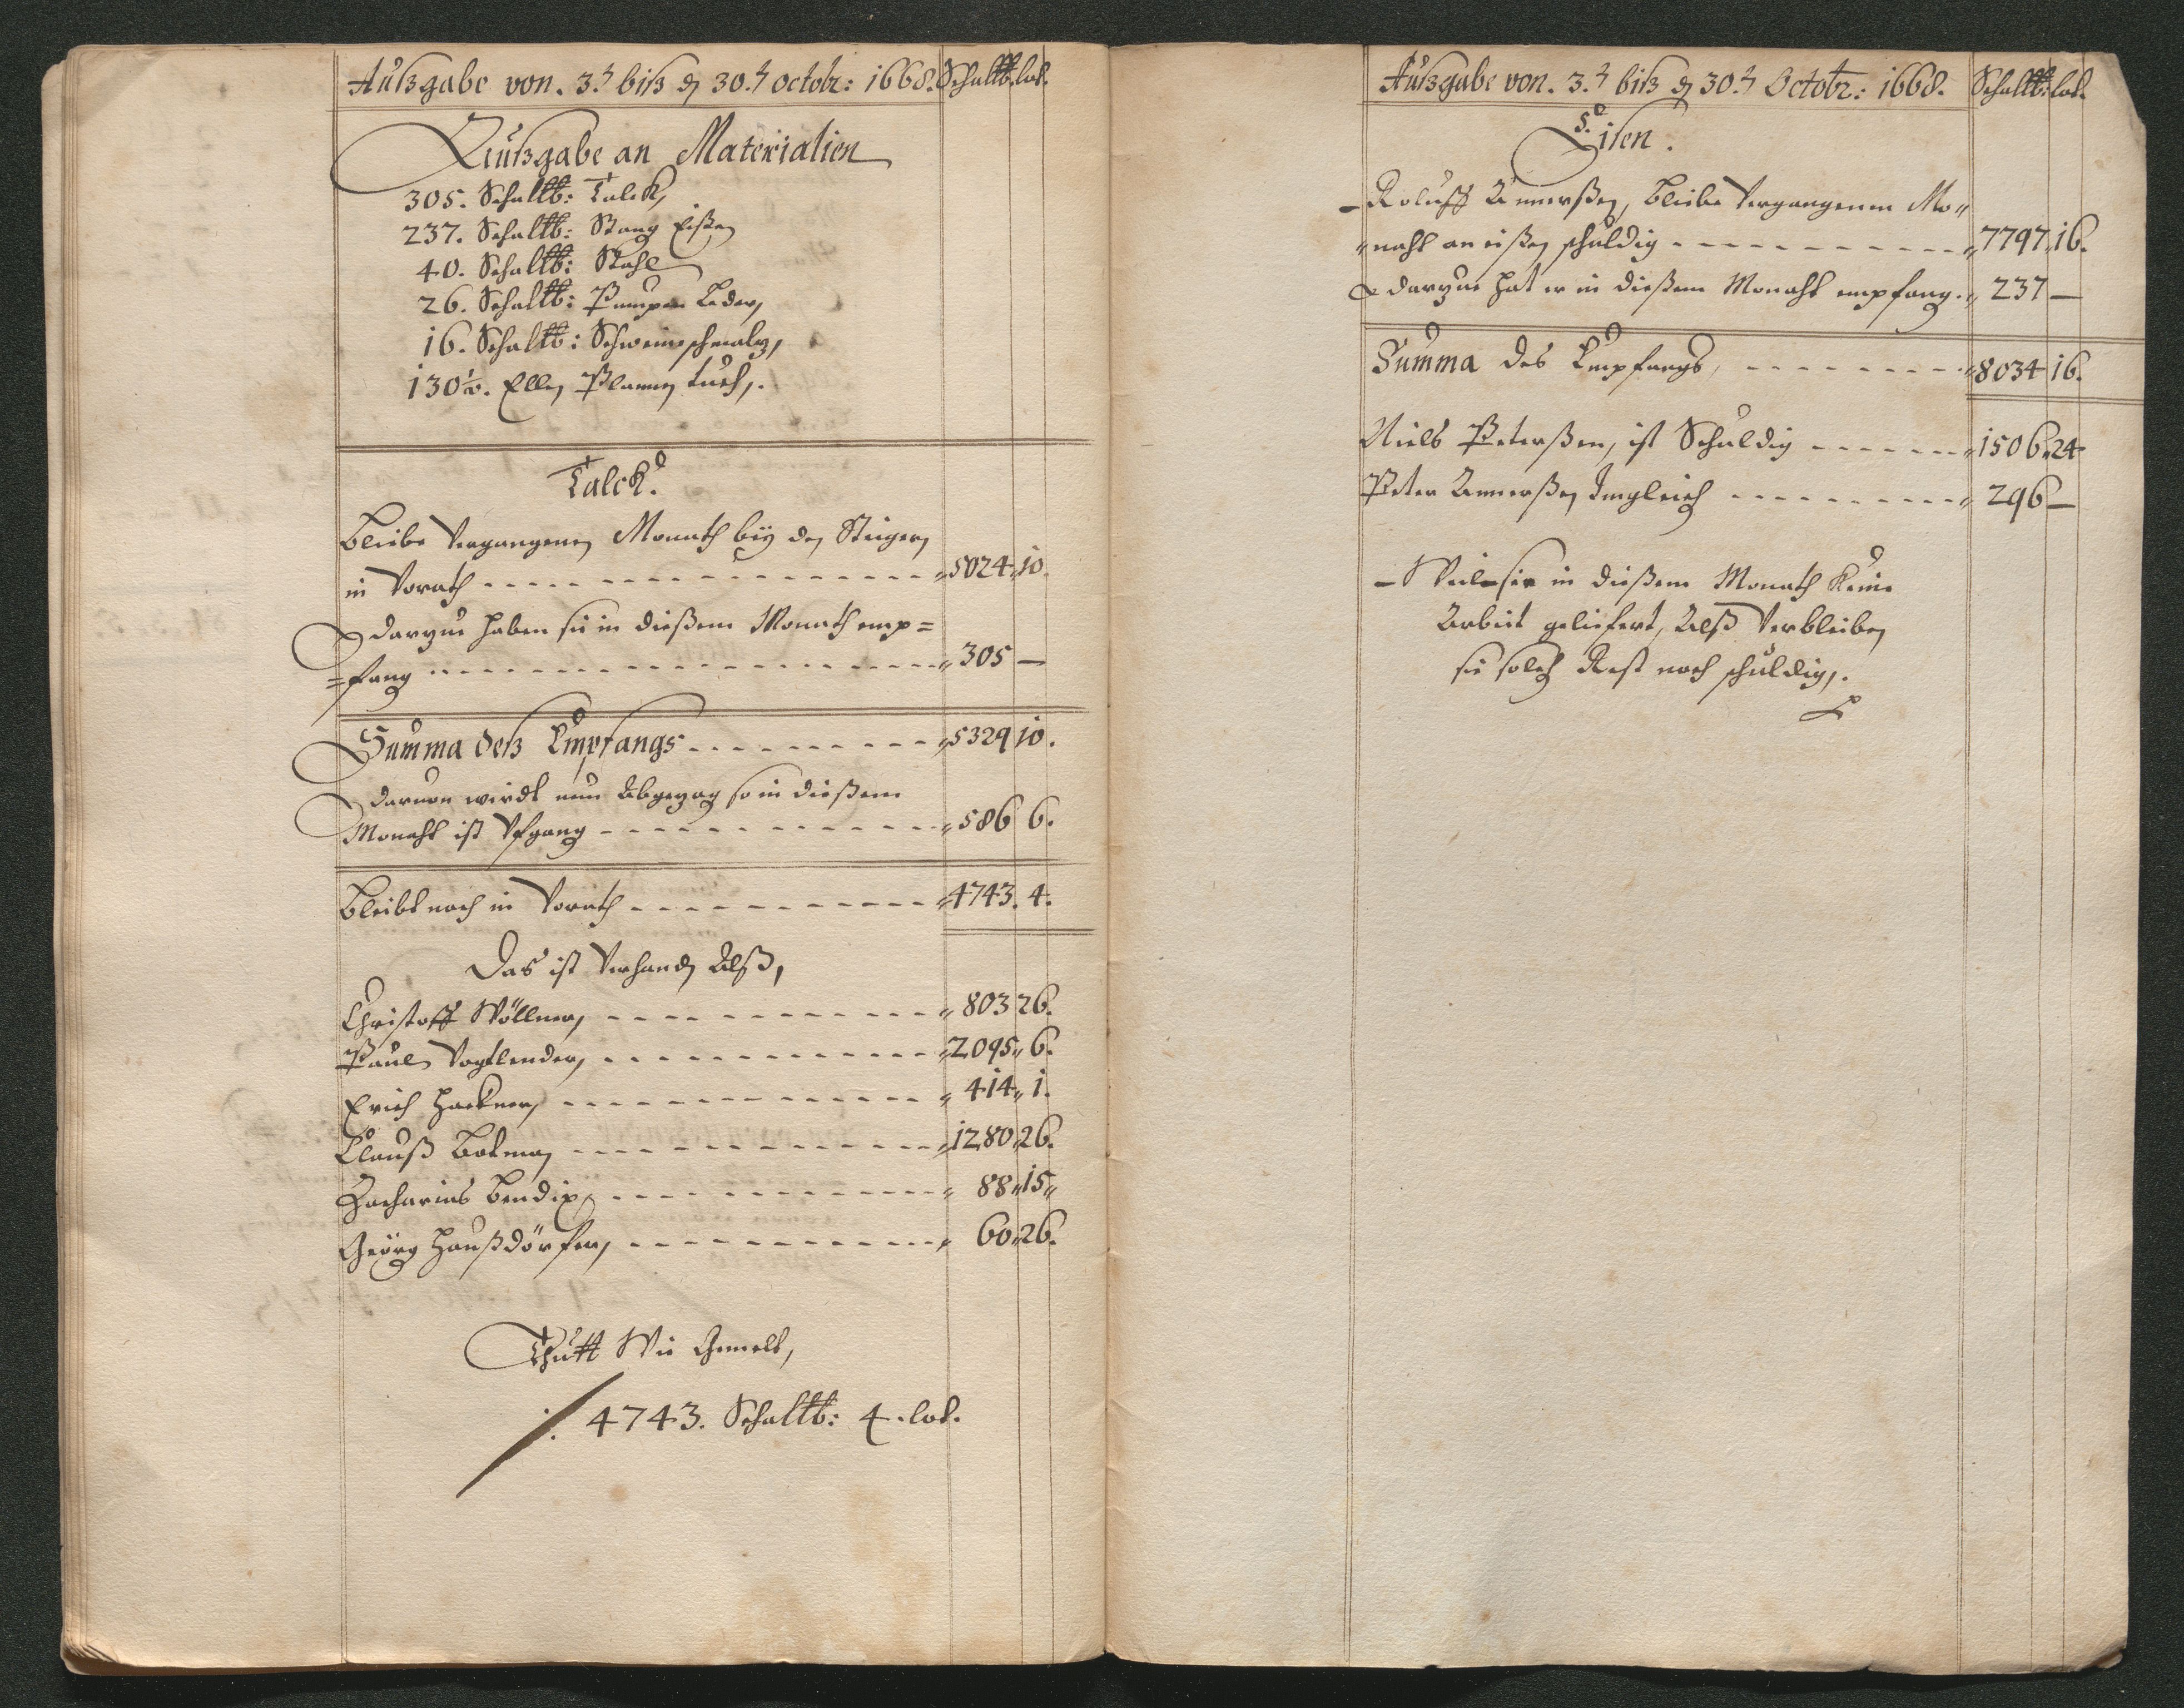 Außgabe von. 3.t biß d 30.t octobr: 1668. Schaltt: lot.
Außgabe an Materialien
305. Schaltt: Talck,
237. Schaltt: Stang Eißen
40. Schaltt: Stahl
26. Schaltt: Pumpen Leder,
16. Schaltt: Schweineschmaltz,
130 1/2. Ellen Plannen tuch,.
Talck.
Bleibe Vergangenen Monath bey den Steigern
in Vorath 5024 10.
darzue haben sie in dießem Monath emp=
=fang 305 —
Summa deß Empfangs 5329 10.
daruon wirdt nun Abgezog so in dießem
Monaht ist Vfgang 586 6.
Bleibt noch in Vorath 4743. 4.
Das ist Verhanden Alß,
Christoff Wöllner, 803 26.
Paul Vogtlender, 2095 6.
Erich Hackner, 414 1.
Clauß Botman 1280 26.
Zacharias Bendix 88 15
Geörg Haußdörfer, 60 26.
Thutt Wie Gemelt,
4743. Schaltt: 4. lot.
Außgabe von. 3.t biß d 30.t Octobr: 1668. Schaltt: lot.
Eisen.
Roluff Amerßen, Bleibe Vergangenem Mo"
"naht an eißen schuldig 7797 16.
darzue hat er in dießem Monaht empfang. 237 —
Summa des Empfangs, 8034 16.
Niels Peterßen, ist Schuldig 1506 24
Peter Amerßen Imgleich 296 —
Weil sie in dießem Monath Keine
Arbeit geliefert, Alß Verbleiben
sie solch Rest noch schuldig,.